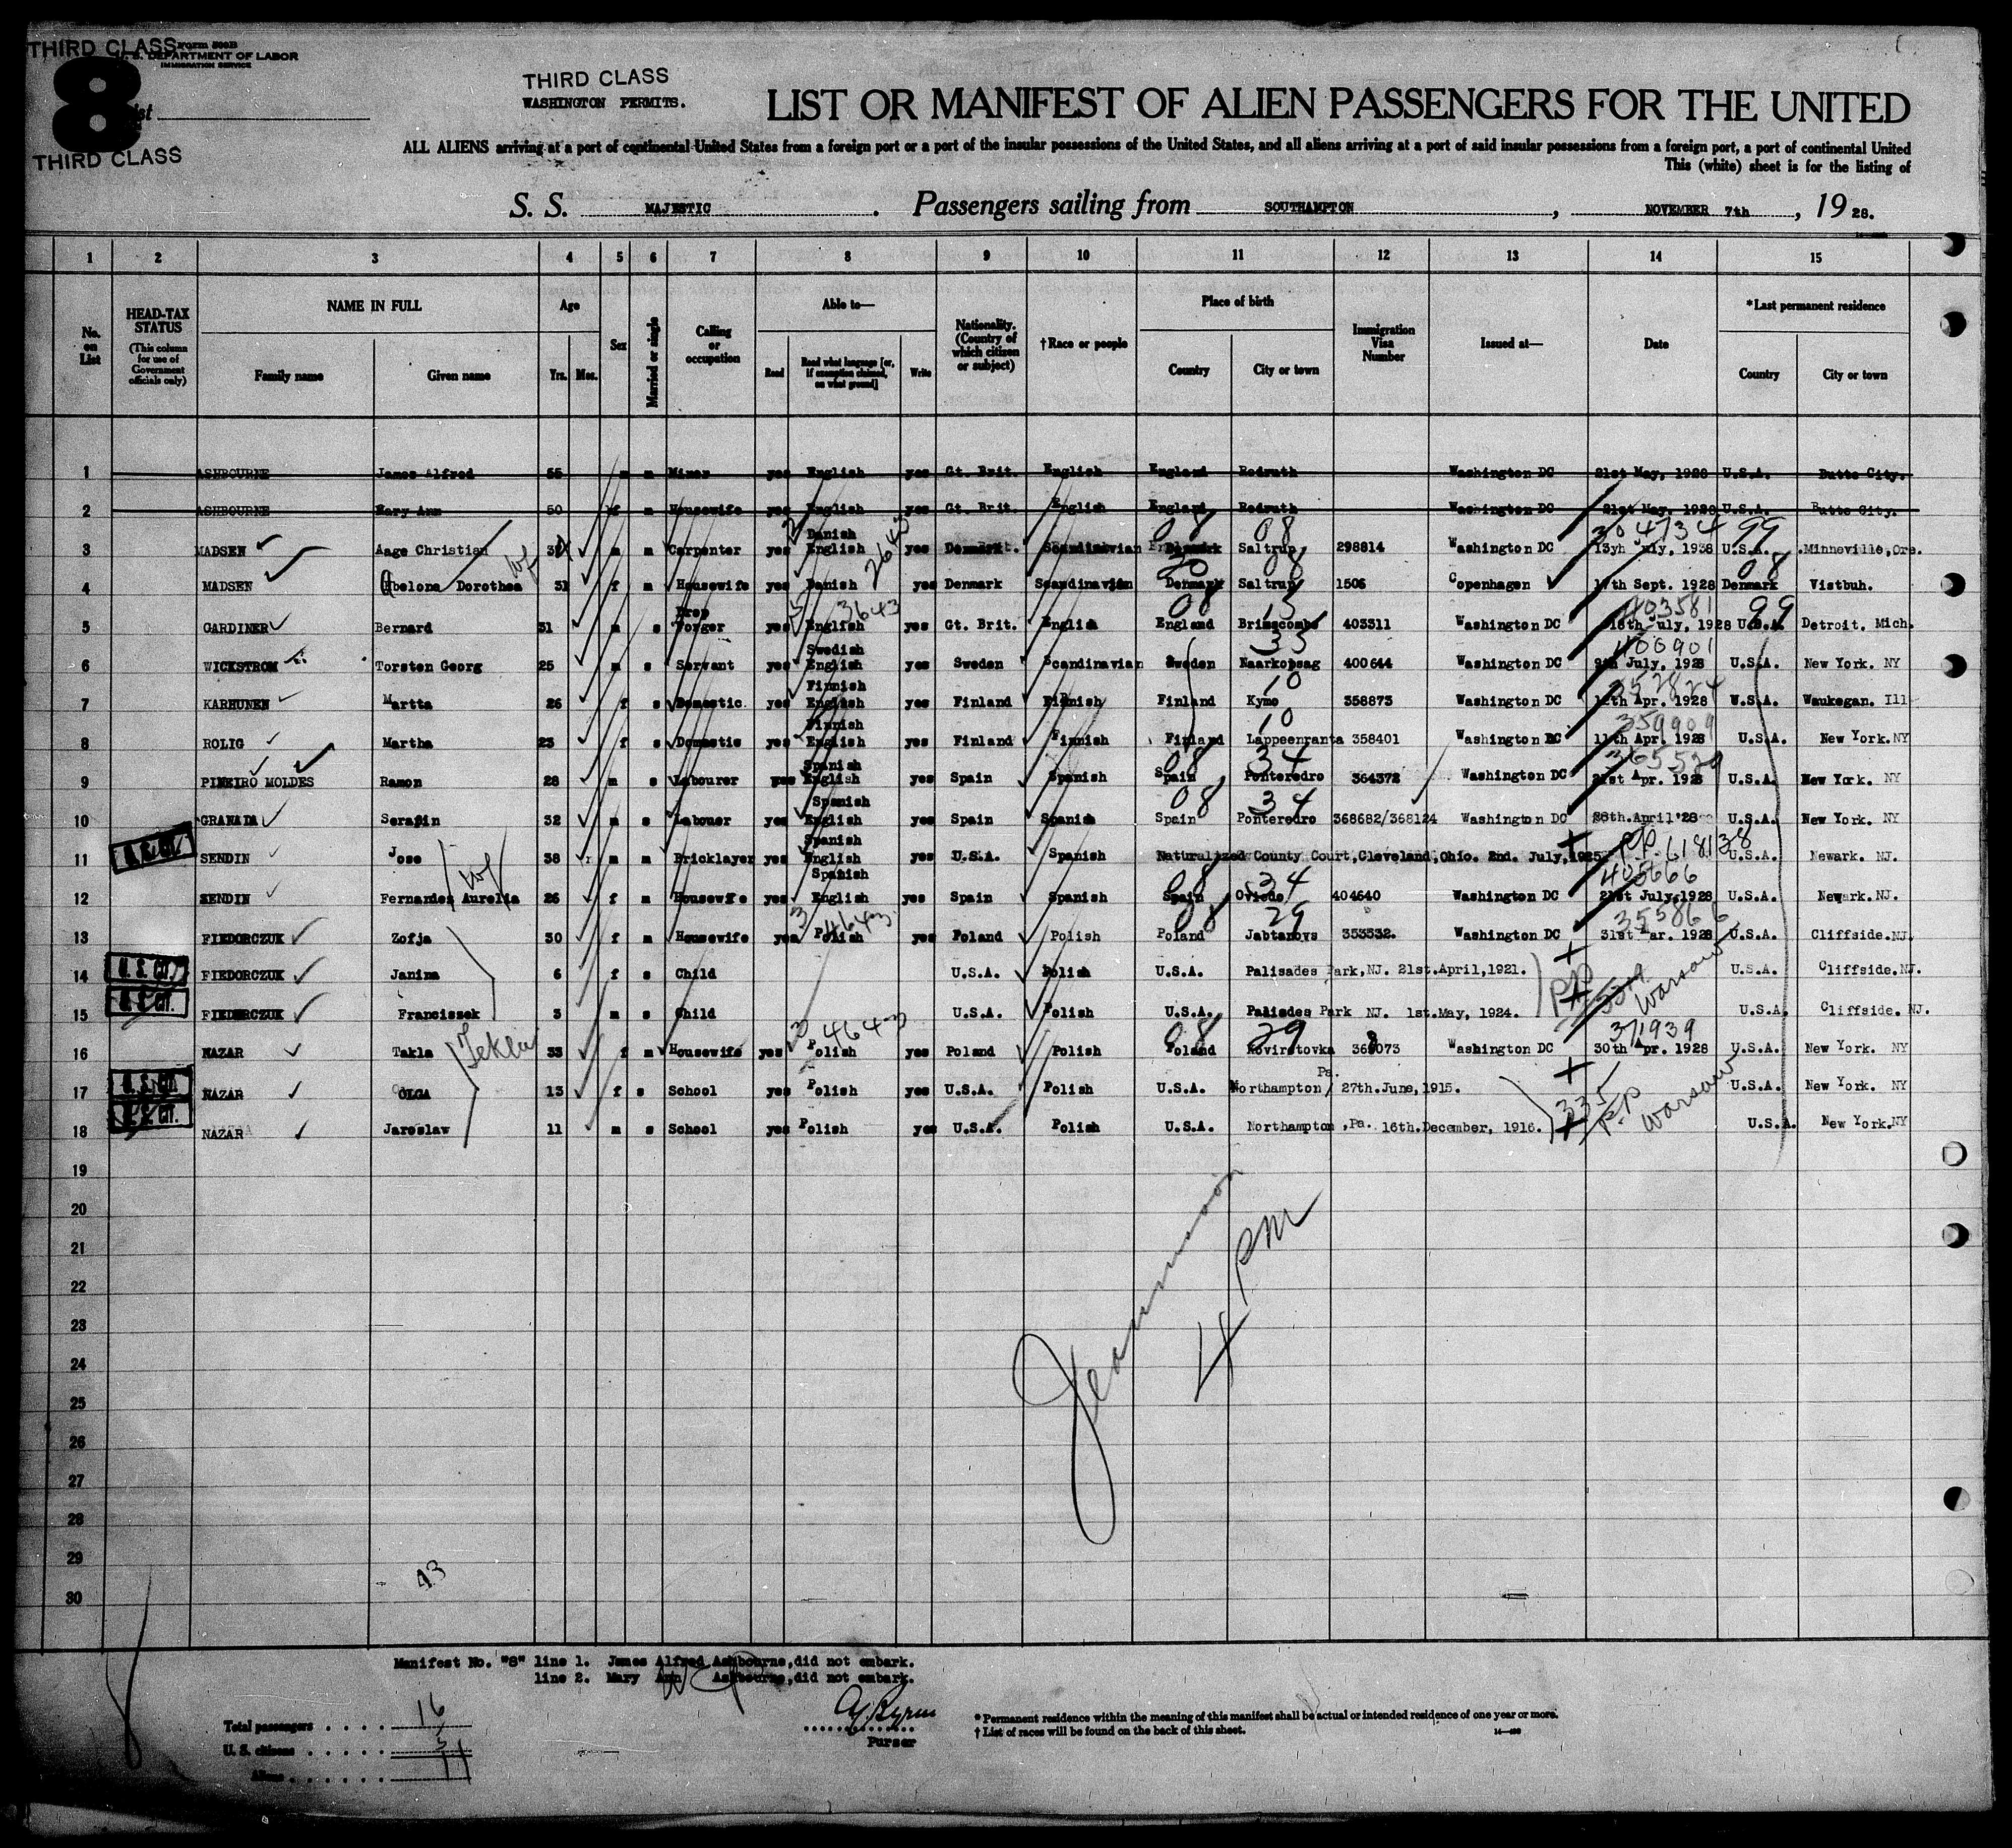 THIRD CLASS Form 500B
U. S. DEPARTMENT OF LABOR
IMMIGRATION SERVICE
8
THIRD CLASS
THIRD CLASS
WASHINGTON PERMITS.
LIST OR MANIFEST OF ALIEN PASSENGERS FOR THE UNITED
ALL ALIENS arriving at a port of continental United States from a foreign port or a port of the insular possessions of the United States, and all aliens arriving at a port of said insular possessions from a foreign port, a port of continental United
This (white) sheet is for the listing of
S. S. MAJESTIC . Passengers sailing from SOUTHAMPTON , NOVEMBER 7th , 19 28.
1 2 3 4 5 6 7 8 9 10 11 12 13 14 15
No. on List
HEAD-TAX STATUS (This column for use of Government officials only)
NAME IN FULL Family name Given name
Age Yrs. Mos.
Sex
Married or single
Calling or occupation
Able to— Read Read what language [or, if exemption claimed, on what ground] Write
Nationality. (Country of which citizen or subject)
†Race or people
Place of birth Country City or town
Immigration Visa Number
Issued at—
Date
*Last permanent residence Country City or town
1 ASHBOURNE James Alfred 55 m m Miner yes English yes Gt. Brit. English England Redruth Washington DC 21st May, 1928 U.S.A. Butte City.
2 ASHBOURNE Mary Ann 50 f m Housewife yes English yes Gt. Brit. English England Redruth Washington DC 21st May. 1928 U.S.A. Butte City.
3 MADSEN Aage Christian m m Carpenter yes Danish English yes Denmark. Scandinavian Denmark Saltrup 298814 Washington DC 13yh July, 1938 U.S.A. Minneville, Ore.
304734 99
4 MADSEN Abelona Dorothea wf 31 f m Housewife yes Danish yes Denmark Scandinavian Denmark Saltrup 1506 Copenhagen 17th Sept. 1928 Denmark Vistbuh.
5 GARDINER Bernard 31 m s Drop Forger yes English yes Gt. Brit. English England Brimscombe 403311 Washington DC 18th July, 1928 U.S.A. Detroit. Mich.
403581 99
6 WICKSTROM Torsten Georg 25 m s Servant yes Swedish English yes Sweden Scandinavian Sweden Naarkopsag 400644 Washington DC 9th July, 1928 U.S.A. New York. NY
400901
7 KARHUNEN Martta 26 f s Domestic. yes Finnish English yes Finland Finnish Finland Kymo 358873 Washington DC 12th Apr. 1928 U.S.A. Waukegan. Ill
8 ROLIG Martha 23 f s Domestic yes Finnish English yes Finland Finnish Finland Lappeenranta 358401 Washington DC 11th Apr. 1928 U.S.A. New York. NY
359909
9 PINEIRO MOLDES Ramon 28 m s Labourer yes Spanish English yes Spain Spanish Spain Ponteredro 364372 Washington DC 21st Apr. 1928 U.S.A. New York. NY
10 GRANADA Serafin 32 m s Labouer yes Spanish English yes Spain Spanish Spain Ponteredro 368682/368124 Washington DC 28th. April '28 U.S.A. New York. NY
11 SENDIN Jose 38 m m Bricklayer yes Spanish English yes U.S.A. Spanish Naturalized County Court, Cleveland, Ohio. 2nd. July, 1925. PP. 618138 U.S.A. Newark. NJ.
12 SENDIN Fernandes Aurelia wf 26 f m Housewife yes Spanish English yes Spain Spanish Spain Oviedo 404640 Washington DC 21st July, 1928 U.S.A. Newark. NJ.
13 FIEDORCZUK Zofja 30 f m Housewife yes Polish yes Poland Polish Poland Jabtanovs 353532. Washington DC 31st Mar. 1928 U.S.A. Cliffside. NJ.
14 U. S. CIT. FIEDORCZUK Janina 6 f s Child U.S.A. Polish U.S.A. Palisades Park, NJ. 21st. April, 1921. U.S.A Cliffside. NJ.
15 U. S. CIT. FIEDORCZUK Franciszek 3 m s Child U.S.A. Polish U.S.A. Palisdes Park NJ. 1st. May, 1924. PP Warsaw U.S.A. Cliffside. NJ.
16 NAZAR Takla Tekla 33 f m Housewife yes Polish yes Poland Polish Poland Kovirotovka 368073 Washington DC 30th Apr. 1928 U.S.A. New York. NY
371939
17 U. S. CIT. NAZAR OLGA 13 f s School yes Polish yes U.S.A. Polish U.S.A. Northampton/ Pa. 27th. June, 1915. U.S.A. New York. NY
18 U. S. CIT. NAZAR Jaroslaw 11 m s School yes Polish yes U.S.A. Polish U.S.A. Northampton, Pa. 16th. December, 1916. 335 P.P Warsaw U.S.A. New York. NY
19
20
21
22
23
24
25
26
27
28
29
30
4 PM
Manifest No. "8" line 1. James Alfred Ashbourne, did not embark.
line 2. Mary Ann Ashbourne, did not embark.
Purser
Total passengers . . . . 16
U. S. citizens . . . . . 5
Aliens . . . . . . 11
* Permanent residence within the meaning of this manifest shall be actual or intended residence of one year or more.
† List of races will be found on the back of this sheet.